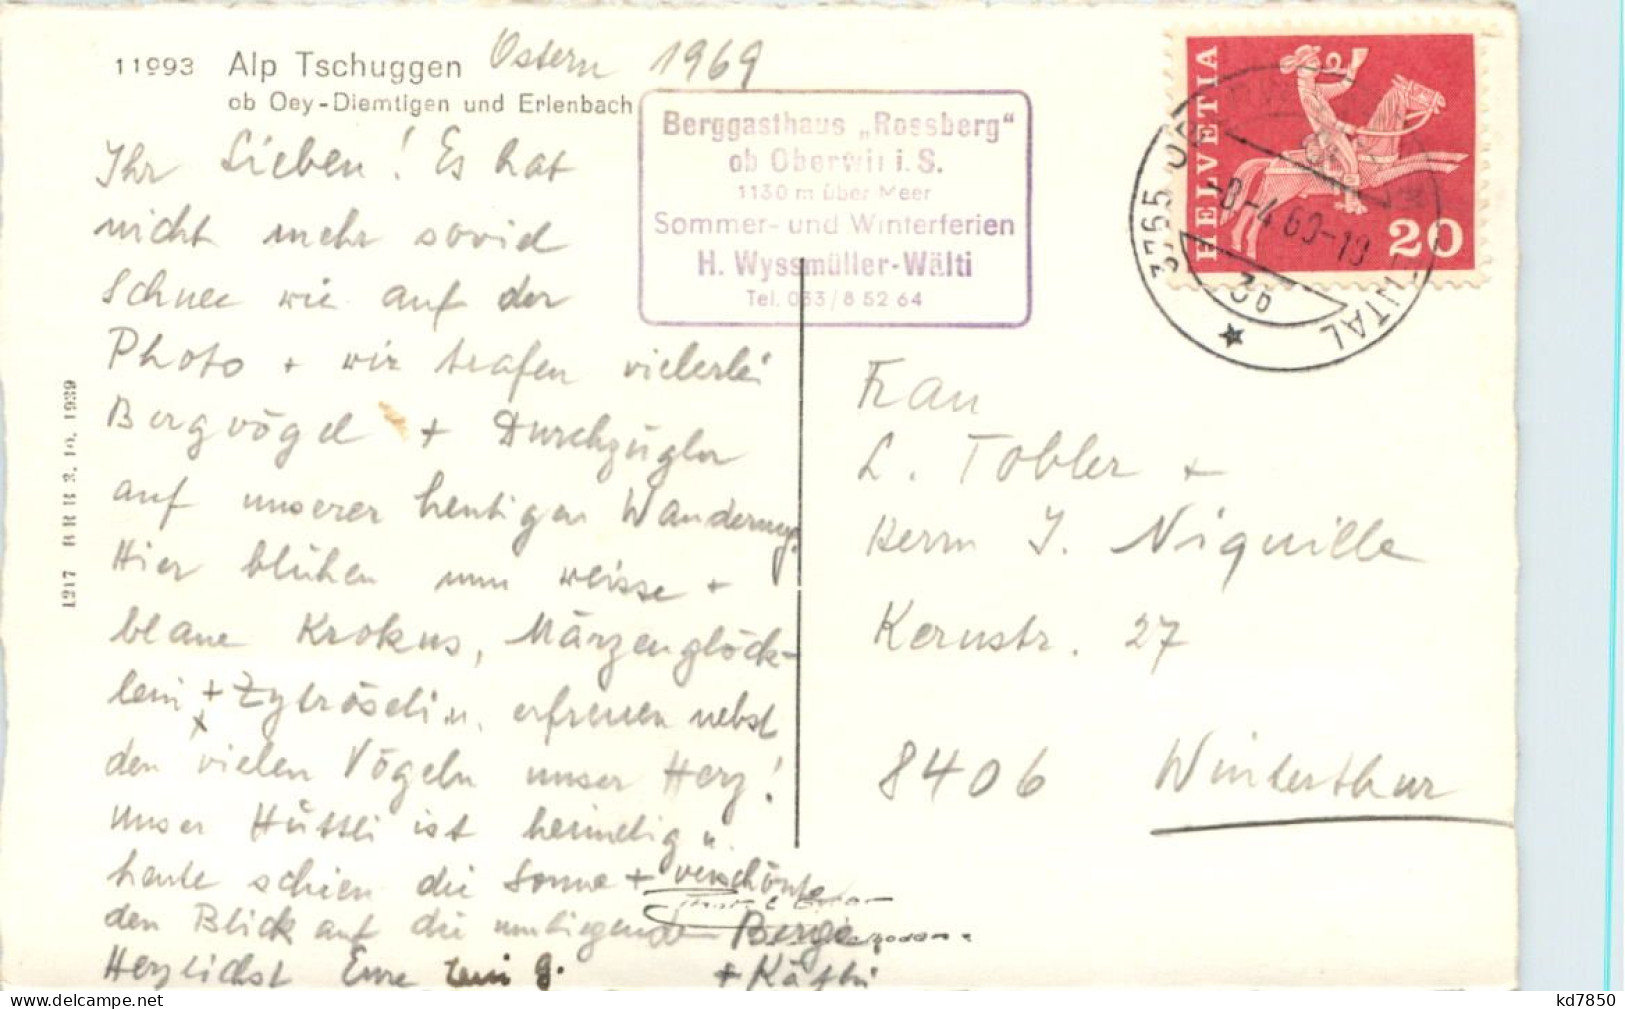 11993 Alp Tschuggen Ostern 1969
ob Oey-Diemtigen und Erlenbach
Berggasthaus „Rossberg“
ob Oberwil i. S.
1130 m über Meer
Sommer- und Winterferien
H. Wyssmüller-Wälti
Tel. 033/8 52 64
HELVETIA
20
3765
-8-4 69-19
3b
Ihr Lieben! Es hat
nicht mehr soviel
Schnee wie auf der
Photo + wir trafen vielerlei
Bergvögel + Durchzügler
auf unserer heutigen Wanderung.
Hier blühen nun weisse +
blaue Krokus, Märzenglöck-
lein + Zytröseli u. erfreuen nebst
den vielen Vögeln unser Herz!
Unser Hüttli ist heimelig u.
heute schien die Sonne + verschönte
den Blick auf die umliegenden Berge
Herzlichst Eure
+ Käthi
1217 BRB 3. 10. 1939
Frau
L. Tobler +
Herrn J. Niquille
Kernstr. 27
8406 Winterthur
kd7850